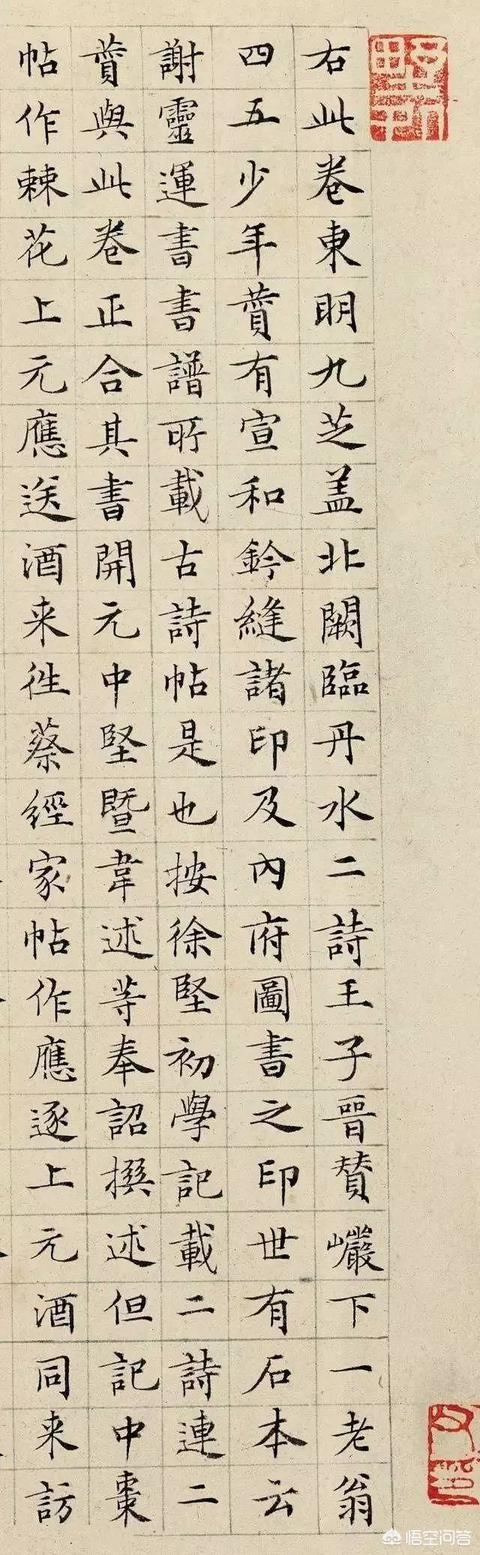 右此卷東明九芝盖北闕臨丹水二詩王子晉賛巗下一老翁
四五少年賛有宣和鈐縫諸印及內府圖書之印世有石本云
謝靈運書書譜所載古詩帖是也按徐堅初學記載二詩連二
賛與此卷正合其書開元中堅暨韋述等奉詔撰述但記中棗
帖作棘花上元應送酒来徃蔡經家帖作應逐上元酒同来訪
悟空问答